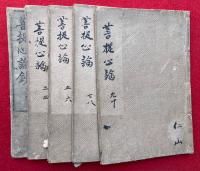 菩提心論
菩提心論
三四
菩提心論
五六
菩提心論
七八
菩提心論
九十
仁山